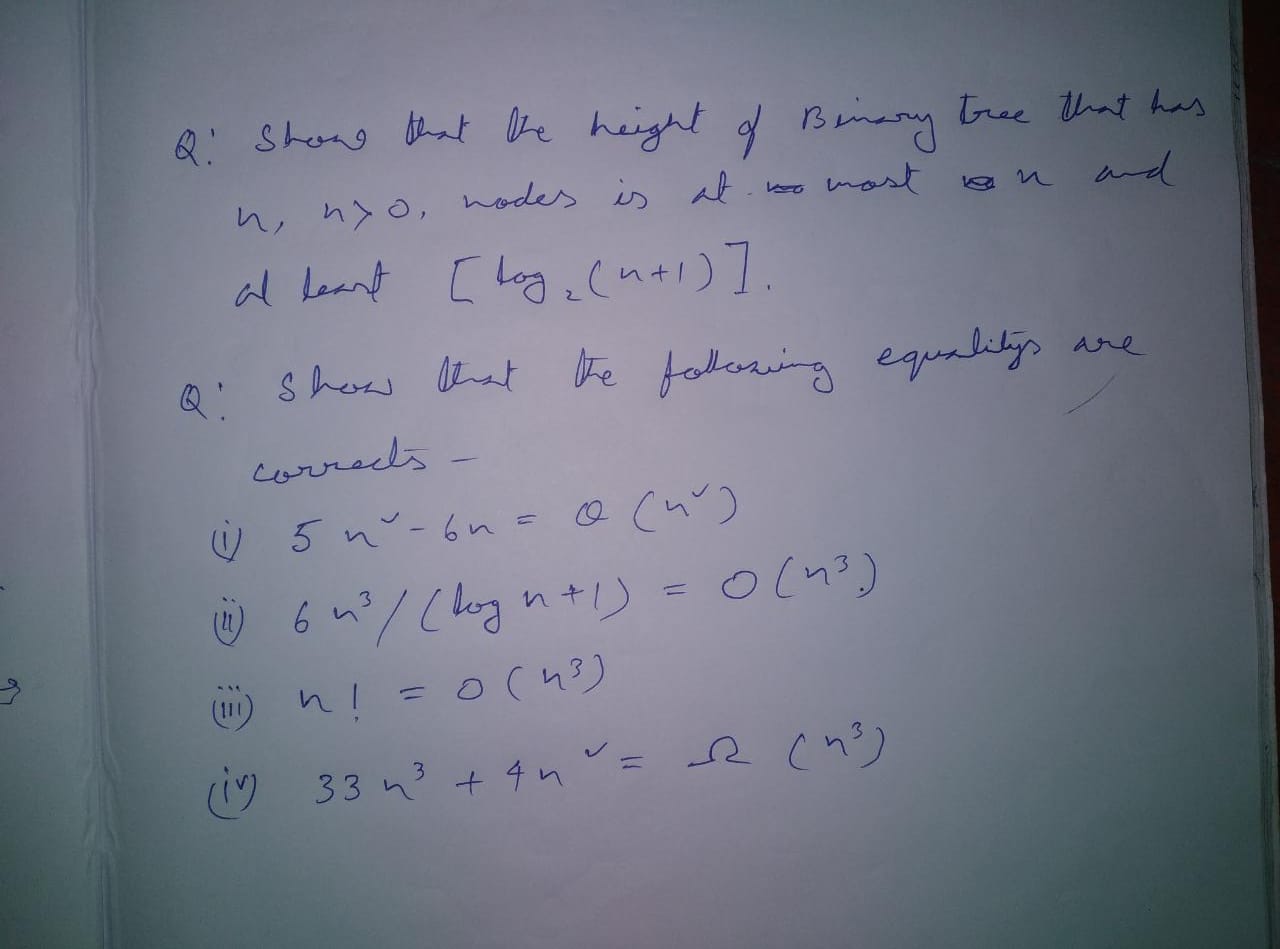 Q: Show that the height of Binary tree that has
n, n>0, nodes is at most n and
at least [log₂(n+1)].
Q: Show that the following equalitys are
corrects -
(i) 5n² - 6n = Θ(n²)
(ii) 6n³/(log n+1) = O(n³)
(iii) n! = O(n³)
(iv) 33n³ + 4n² = Ω(n³)